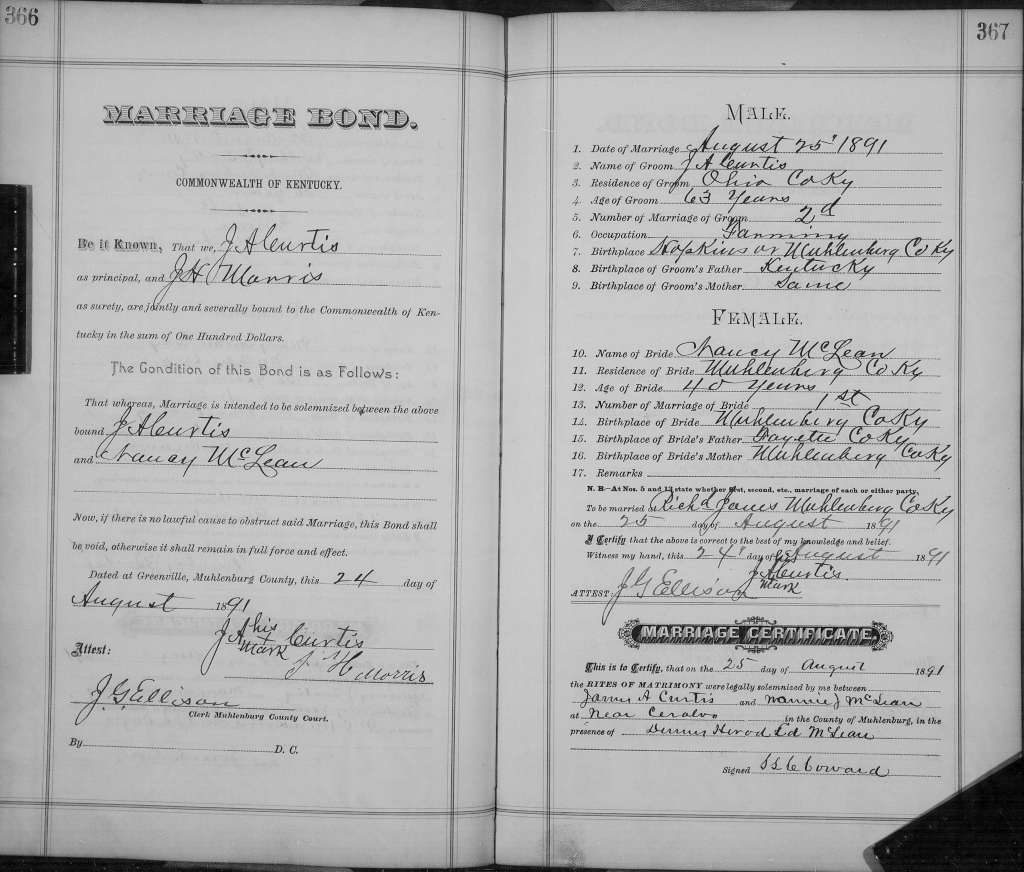 366
MARRIAGE BOND.
COMMONWEALTH OF KENTUCKY.
Be it Known, That we, J A Curtis
as principal, and J H Morris
as surety, are jointly and severally bound to the Commonwealth of Ken-
tucky in the sum of One Hundred Dollars.
The Condition of this Bond is as Follows:
That whereas, Marriage is intended to be solemnized between the above
bound J A Curtis
and Nancy McLean
Now, if there is no lawful cause to obstruct said Marriage, this Bond shall
be void, otherwise it shall remain in full force and effect.
Dated at Greenville, Muhlenburg County, this 24 day of
August 1891
J A his x mark Curtis
J H Morris
Attest:
J. G. Ellison
Clerk Muhlenburg County Court.
By D. C.
367
MALE.
1. Date of Marriage August 25' 1891
2. Name of Groom J A Curtis
3. Residence of Groom Ohio Co Ky
4. Age of Groom 63 Years
5. Number of Marriage of Groom 2d
6. Occupation Farming
7. Birthplace Hopkins or Muhlenburg Co Ky
8. Birthplace of Groom's Father Kentucky
9. Birthplace of Groom's Mother Same
FEMALE.
10. Name of Bride Nancy McLean
11. Residence of Bride Muhlenburg Co Ky
12. Age of Bride 40 Years
13. Number of Marriage of Bride 1st
14. Birthplace of Bride Muhlenburg Co Ky
15. Birthplace of Bride's Father Fayette Co Ky
16. Birthplace of Bride's Mother Muhlenburg Co Ky
17. Remarks
N. B.—At Nos. 5 and 13 state whether first, second, etc., marriage of each or either party.
To be married at Richd Janes Muhlenburg Co Ky
on the 25 day of August 1891
I Certify that the above is correct to the best of my knowledge and belief.
Witness my hand, this 24' day of August 1891
J A his Curtis
mark
ATTEST: J G Ellison
MARRIAGE CERTIFICATE.
This is to Certify, that on the 25 day of August 1891
the RITES OF MATRIMONY were legally solemnized by me between
James A Curtis and Nannie J McLean
at Near Ceralvo in the County of Muhlenburg, in the
presence of Herod Ed McLean
Signed Coward